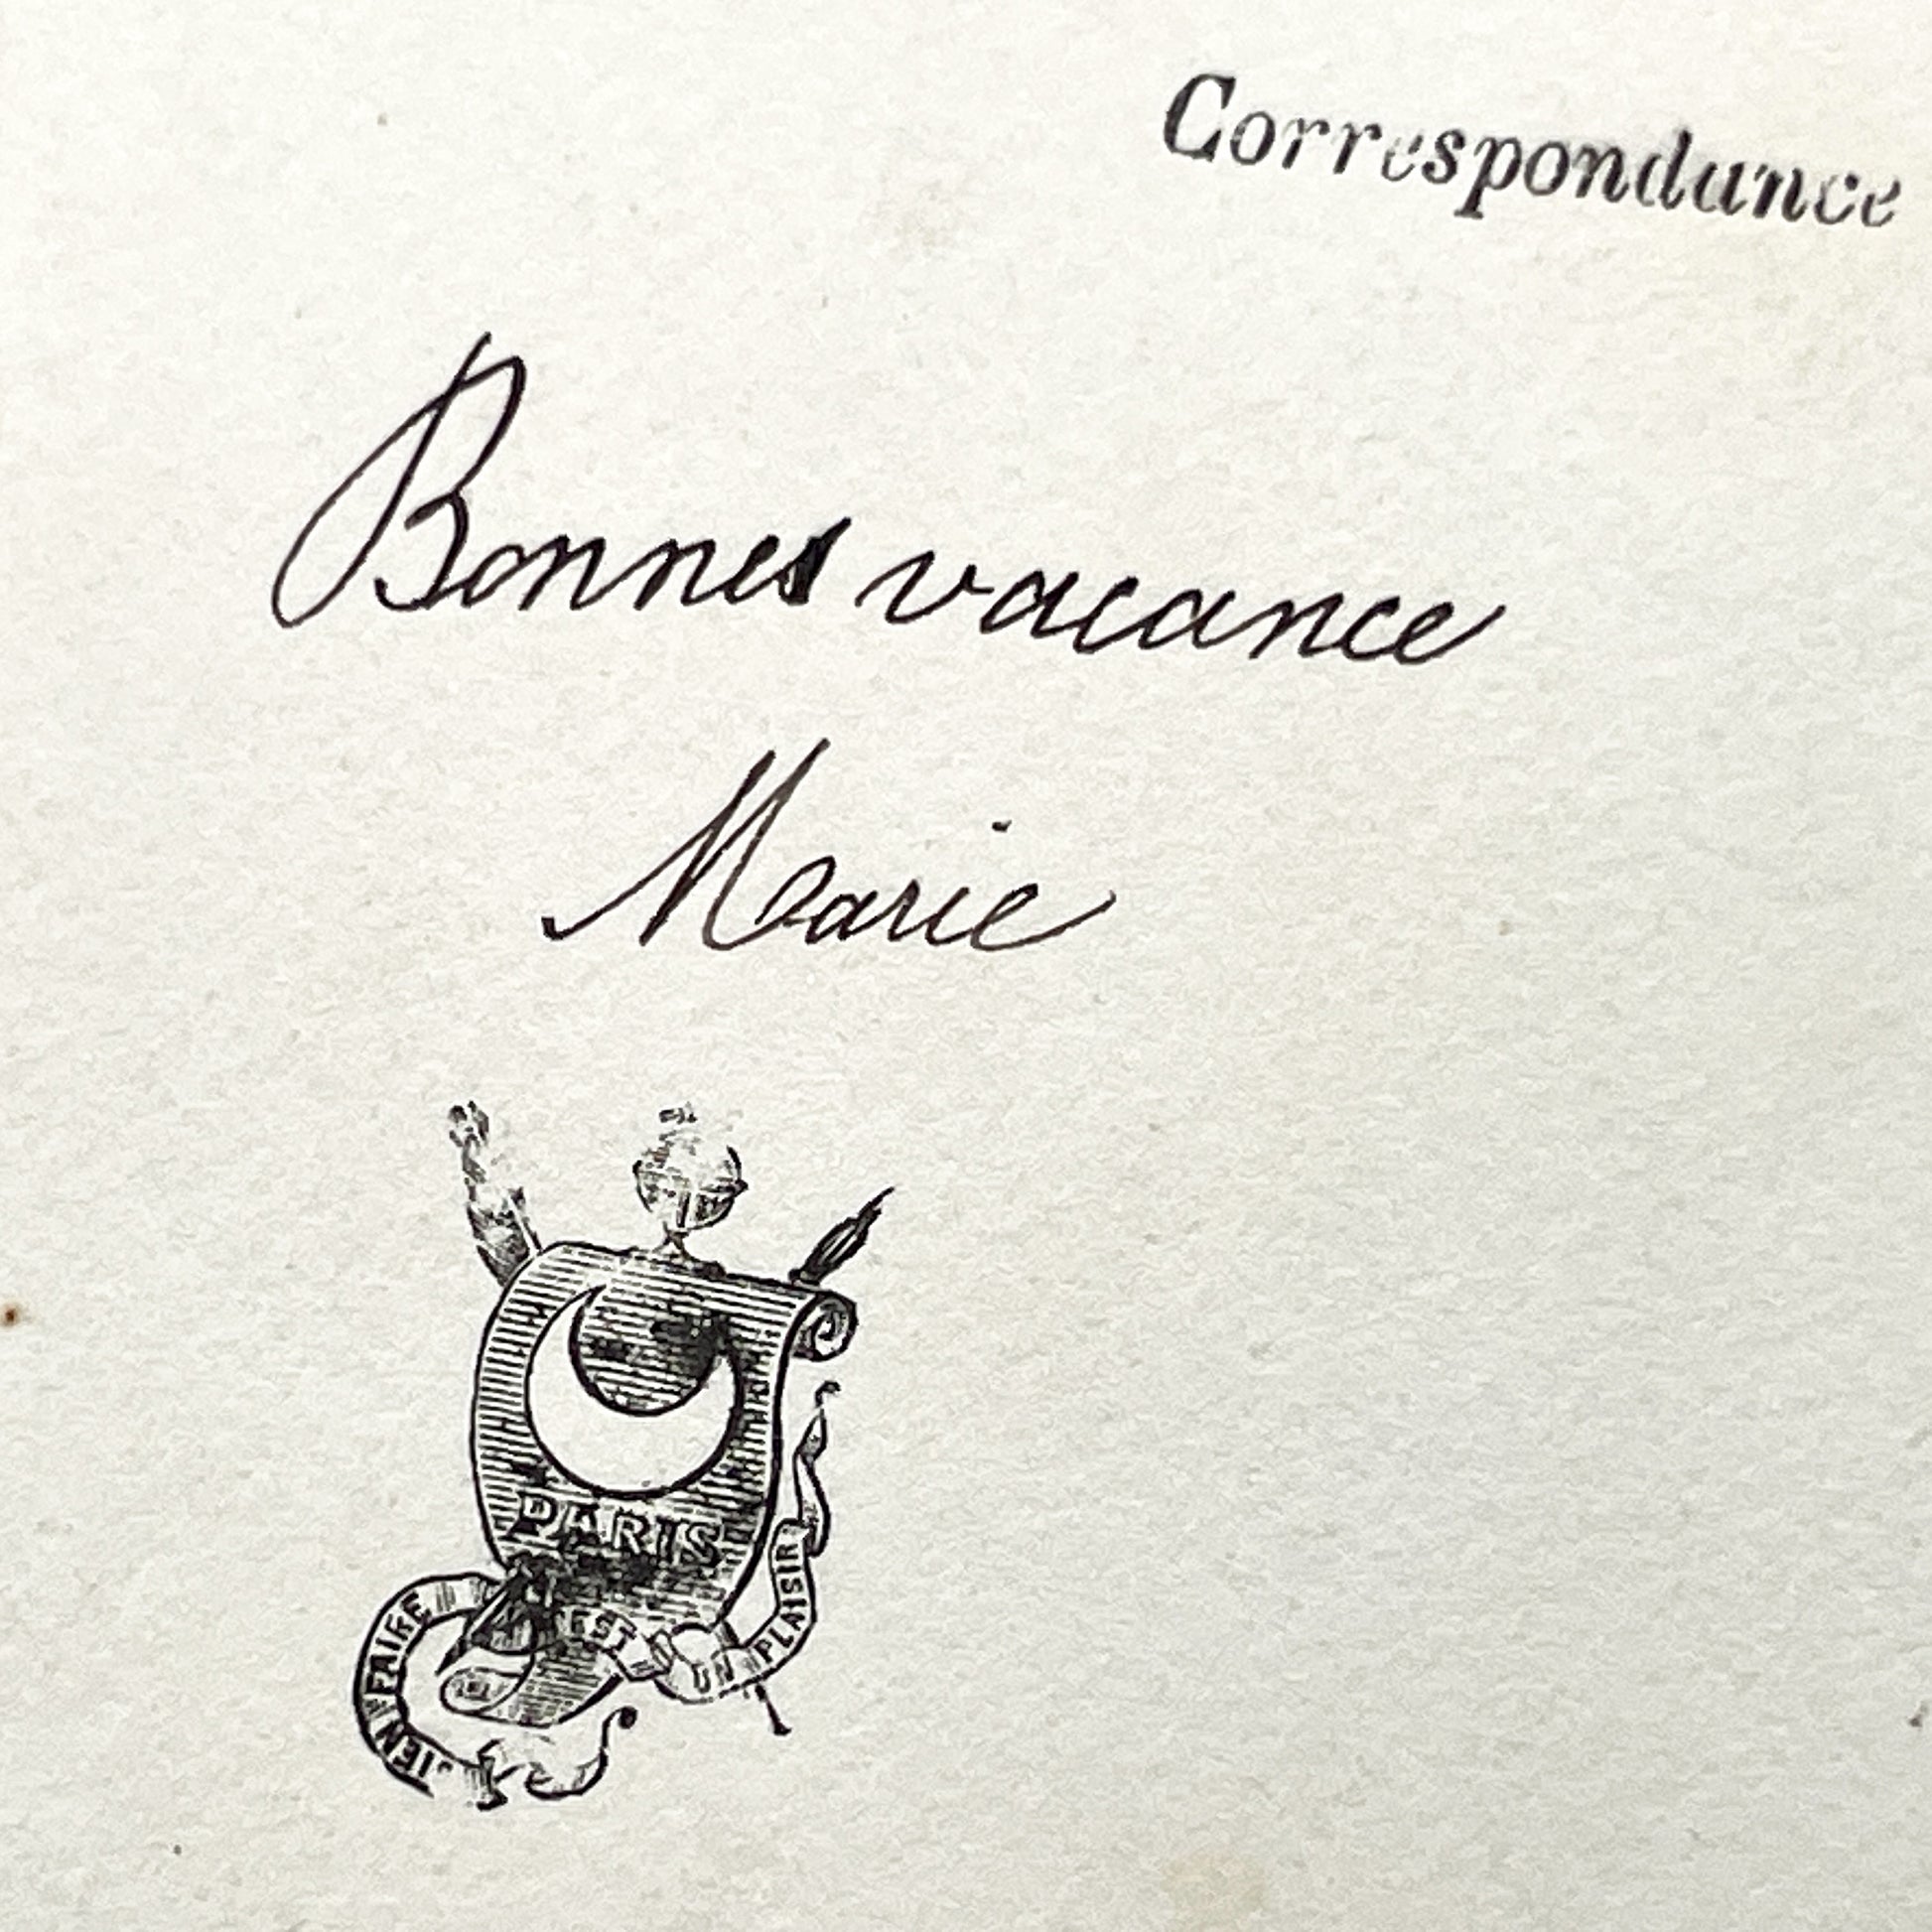 Correspondance
Bonnes vacance
Marie
PARIS
FAIRE
EST
UN PLAISIR